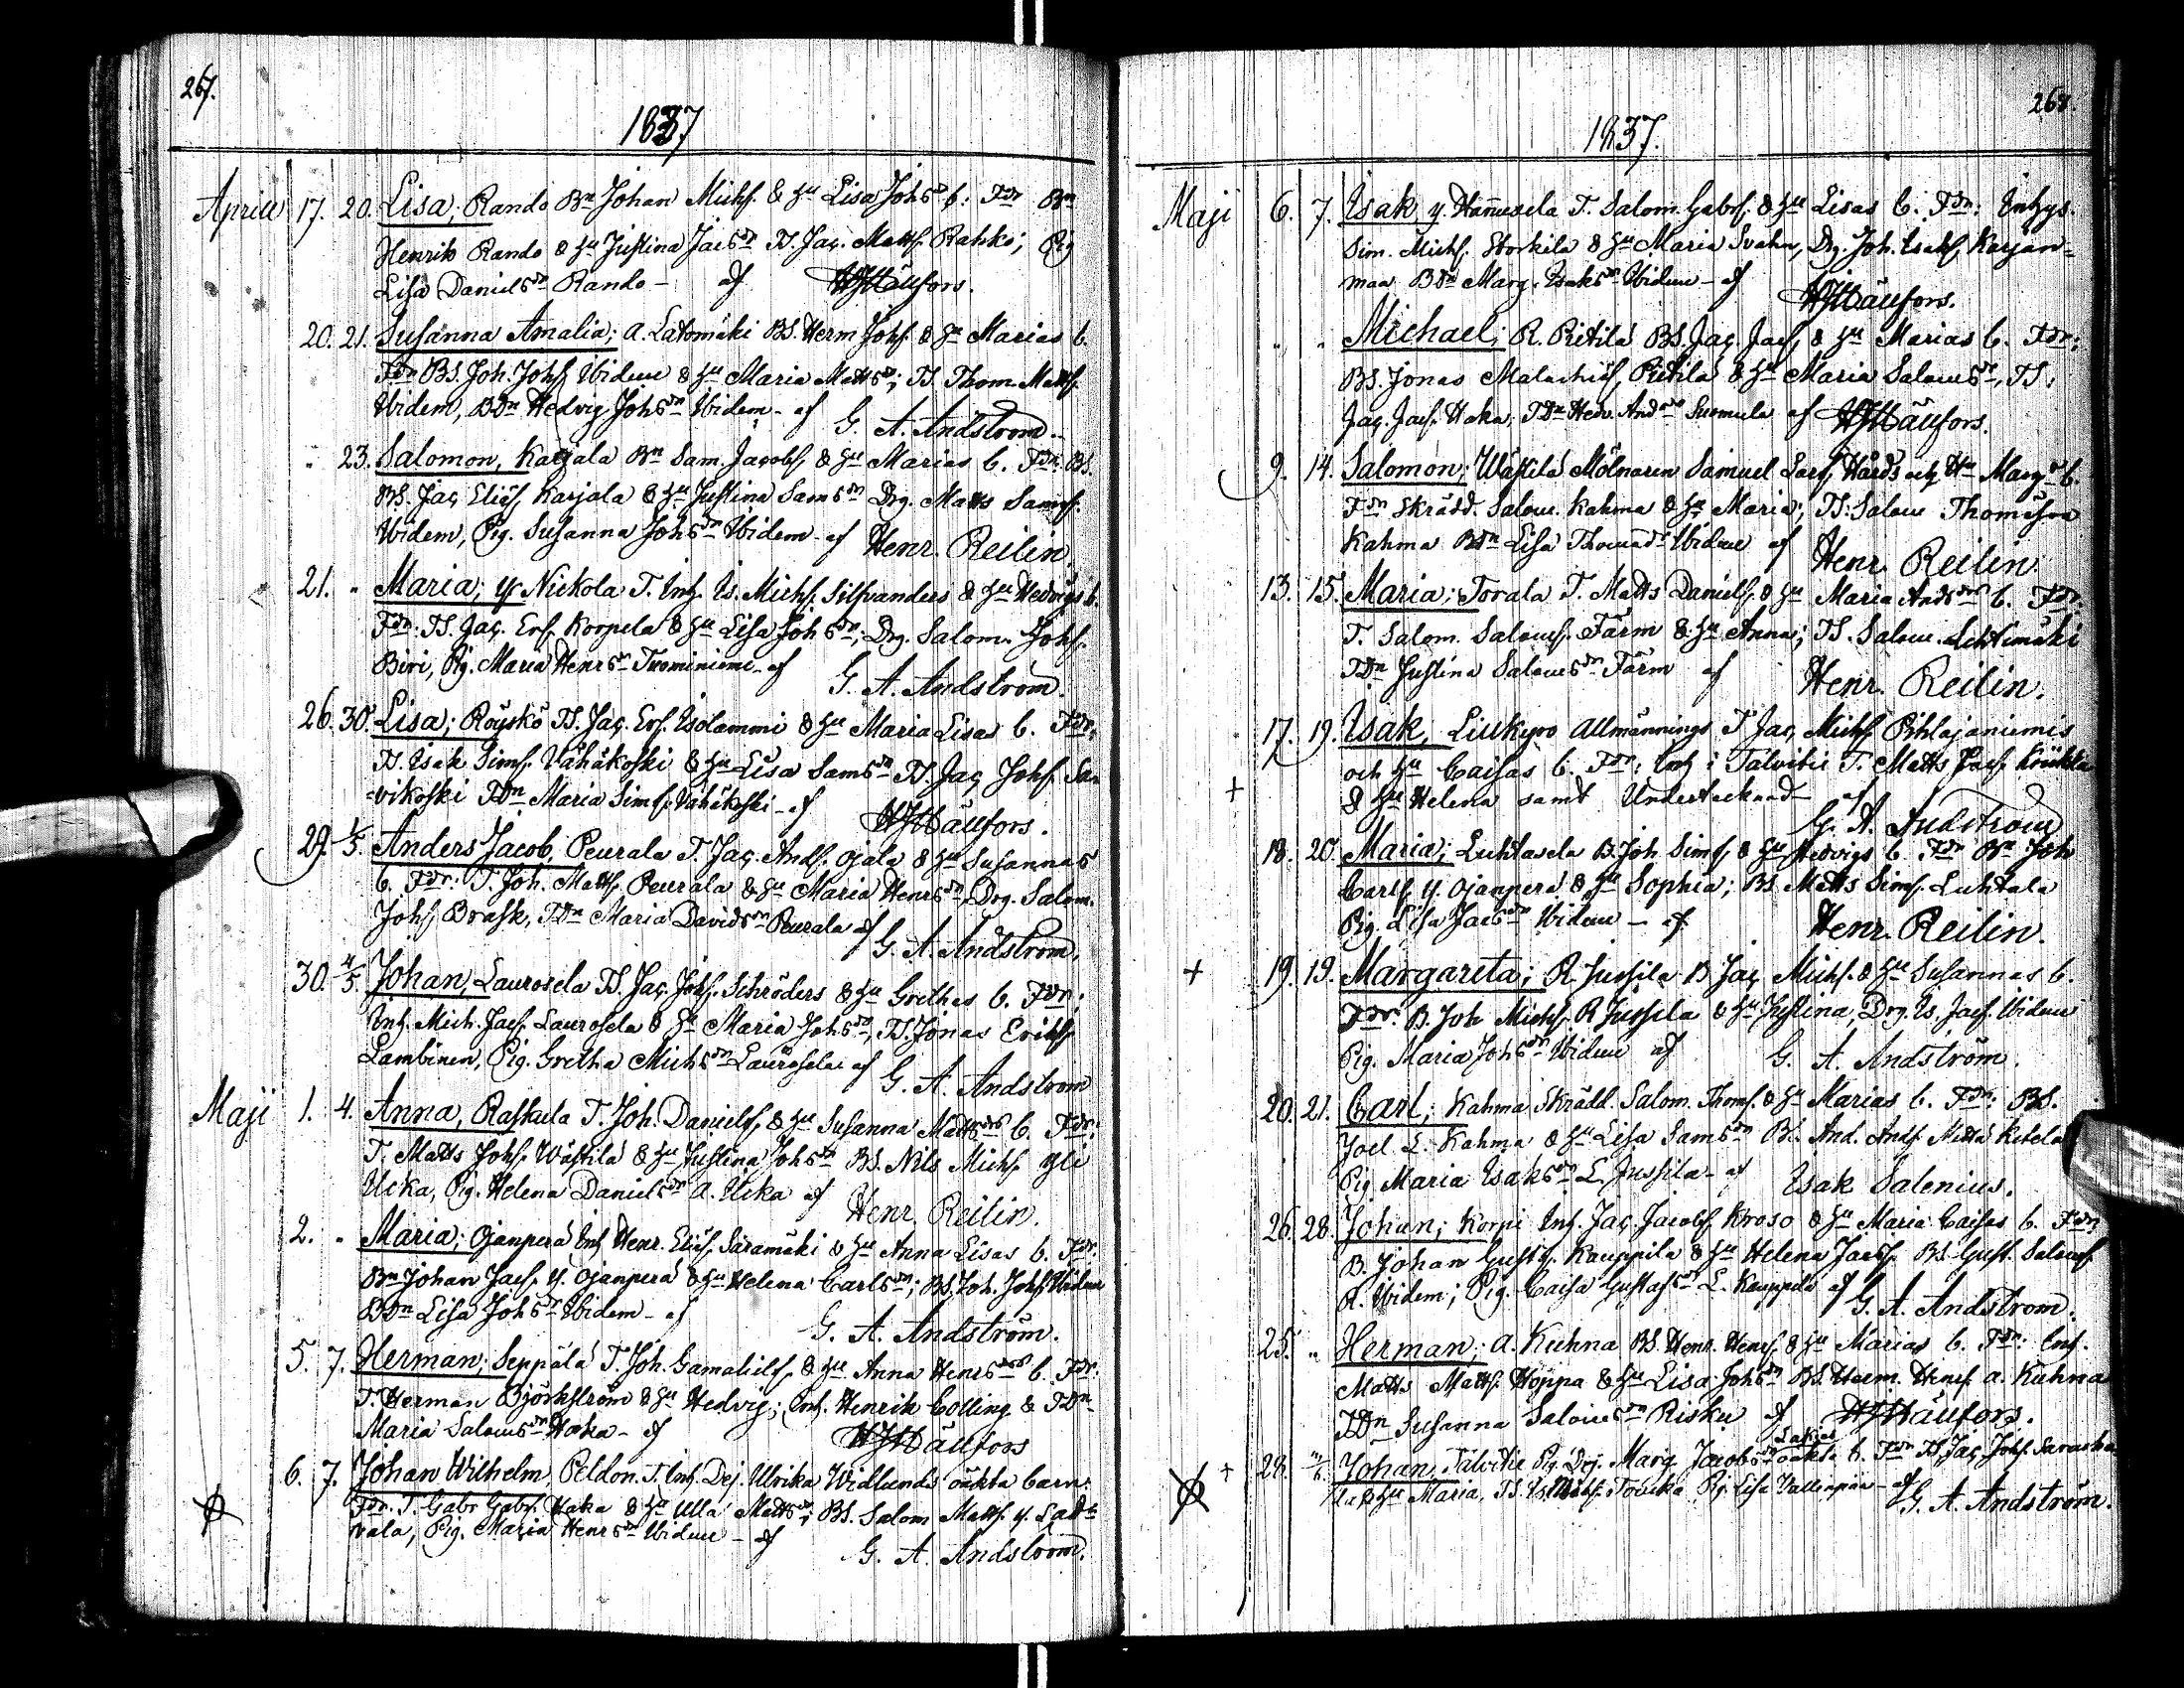 267.
1837
Aprill 17. 20. Lisa; Rando Bn Johan Michs. & hu Lisa Johsd b: Fdr Bn
Henrik Rando & hu Justina Jacsdr TS. Jac. Matts. Rahko; Pig
Lisa Danielsdr Rando - af
20. 21. Susanna Amalia; A. Latomäki BS. Herm Johs. & hu Marias b.
Fdr BS. Joh. Johs. Ibidem & hu Maria Mattsdr; TS. Thom. Matts.
Ibidem, BDr Hedvig Johsdr Ibidem - af G. A. Andström.
" 23. Salomon, Karjala Bn Sam. Jacobs. & hu Marias b. Fdr: BS.
BS. Jac Elis. Karjala & hu Justina Samsdr Dng. Matts Sams.
Ibidem, Pig. Susanna Johsdr Ibidem - af Henr. Reilin.
21. " Maria; Y Nickola T. Inh. Is. Michs. Silfvanders & hu Hedvigs b.
Fdr: TS. Jac. Ers. Korpela & hu Lisa Johsdr, Dng. Salom. Johs.
Biri, Pig. Maria Henrsdr Tuominiemi - af G. A. Andström.
26. 30. Lisa; Röyskö TS. Jac. Ers. Isolammi & hu Maria Lisas b. Fdr:
TS. Isak Sims. Vähäkoski & hu Lisa Samsdr TS. Jac Johs. Sa-
-vikoski TDr Maria Sims. Vähäkoski - af
29. 1/5. Anders Jacob, Peurala T. Jac. Ands. Ojala & hu Susannas
b. Fdr: T. Joh. Matts. Peurala & hu Maria Henrsdr, Dng. Salom.
Johs. Brask, TDr Maria Davidsdr Peurala af G. A. Andström.
30. 4/5. Johan, Laurosela TS. Jac. Johs. Schröders & hu Grethas b. Fdr:
Inh. Mich. Jacs. Laurosela & hu Maria Johsdr, TS. Jonas Eriks.
Lambinen, Pig. Gretha Michsdr Laurosela af G. A. Andström
Maji 1. 4. Anna, Raskula T. Joh. Daniels. & hu Susanna Mattsdrs b. Fdr:
T. Matts Johs. Wästilä & hu Justina Johsdr BS. Nils Michs. Yli
Ucka, Pig. Helena Danielsdr A. Ucka af Henr. Reilin.
2. " Maria; Ojanperä Inh Henr. Elis. Säramäki & hu Anna Lisas b. Fdr:
Bn Johan Jacs. Y. Ojanperä & hu Helena Carlsdr; BS. Joh. Johs. Ibidem
BDr Lisa Johsdr Ibidem - af G. A. Andström.
5. 7. Herman; Seppälä T. Joh. Gamaliels. & hu Anna Henrsdrs b. Fdr:
T. Herman Björkström & hu Hedvig; Inh. Henrik Colling & TDr
Maria Salomsdr Haka - af
6. 7. Johan Wilhelm, Peldon. T. Inh. Dej. Ulrika Widlunds oäkta barn.
Fdr. T. Gabr Gabrs. Haka & hu Ulla Mattsdr; BS. Salom Matts. Y. Lad-
vala, Pig. Maria Henrsdr Ibidem - af G. A. Andström.
268.
1837.
Maji 6. 7. Isak, Y. Hannusela T. Salom. Gabrs. & hu Lisas b. Fdr: Inhys.
Sim. Michs. Storkila & hu Maria Svahn, Dng. Joh. Isaks. Karjan-
maa BDr Marg. Isaksdr Ibidem - af
" " Michael; R. Pietilä BS. Jac. Jacs. & hu Marias b. Fdr:
BS. Jonas Malachias. Pietilä & hu Maria Salomsdr, TS.
Jac. Jacs. Haka, TDr Hedv. Andsdr Suomela af
9. 14. Salomon; Wästilä Mölnaren Samuel Lars. Hårds och Hu Margta b.
Fdr Skrädd. Salom. Kahma & hu Maria; TS: Salom Thomasson
Kahma BDr Lisa Thomasdr Ibidem af Henr. Reilin.
13. 15. Maria; Torala T. Matts Daniels. & hu Maria Andsdrs b. Fdr:
T. Salom. Saloms. Färm & hu Anna; TS. Salom. Lehtimäki
TDr Justina Salomsdr Färm af Henr. Reilin.
17. 19. Isak, Liukyro Allmännings T Jac Michs. Pihlajaniemis
och hu Caisas b. Fdr: Inh i Talvitie T. Matts Jacs. Kriikku
& hu Helena samt Undertecknad af G. A. Andström
18. 20. Maria; Luhtasela B. Joh. Sims. & hu Hedvigs b. Fdr Bn Joh
Carls. Y. Ojanperä & hu Sophia; BS. Matts Sims. Luhtala
Pig. Lisa Jacsdr Ibidem - af Henr. Reilin.
19. 19. Margareta; R. Jussila B Jac. Michs. & hu Susannas b.
Fdr. B. Joh Michs. R Jussila & hu Justina, Dng. Is. Jacs. Ibidem
Pig. Maria Johsdr Ibidem af G. A. Andström.
20. 21. Carl; Kahma Skrädd. Salom. Thoms. & hu Marias b. Fdr: BS.
Joel L. Kahma & hu Lisa Samsdr BS. And. Ands. Mittä Ketela
Pig Maria Isaksdr L. Jussila - af Isak Salenius.
26. 28. Johan; Korpi Inh. Jac. Jacobs. Kroso & hu Maria Caisas b. Fdr
B. Johan Gust. Y. Kauppila & hu Helena Jacsdr BS. Gust. Saloms.
R. Ibidem; Pig. Caisa Gustafsdr L. Kauppila af G. A. Andström.
25. " Herman; A. Kuhna BS. Henr. Henrs. & hu Marias b. Fdr: Inh.
Matts Matts. Hoppa & hu Lisa Johsdr BS. Herm. Henrs. A. Kuhna
TDr Susanna Salomsdr Risku af
28. Johan, Talvitie Pig. Dej. Marg Jacobsdr oäkta b. Fdr TS. Jac. Johs.
& hu Maria, TS. Is. Michs. Pig. Lisa - af G. A. Andström.